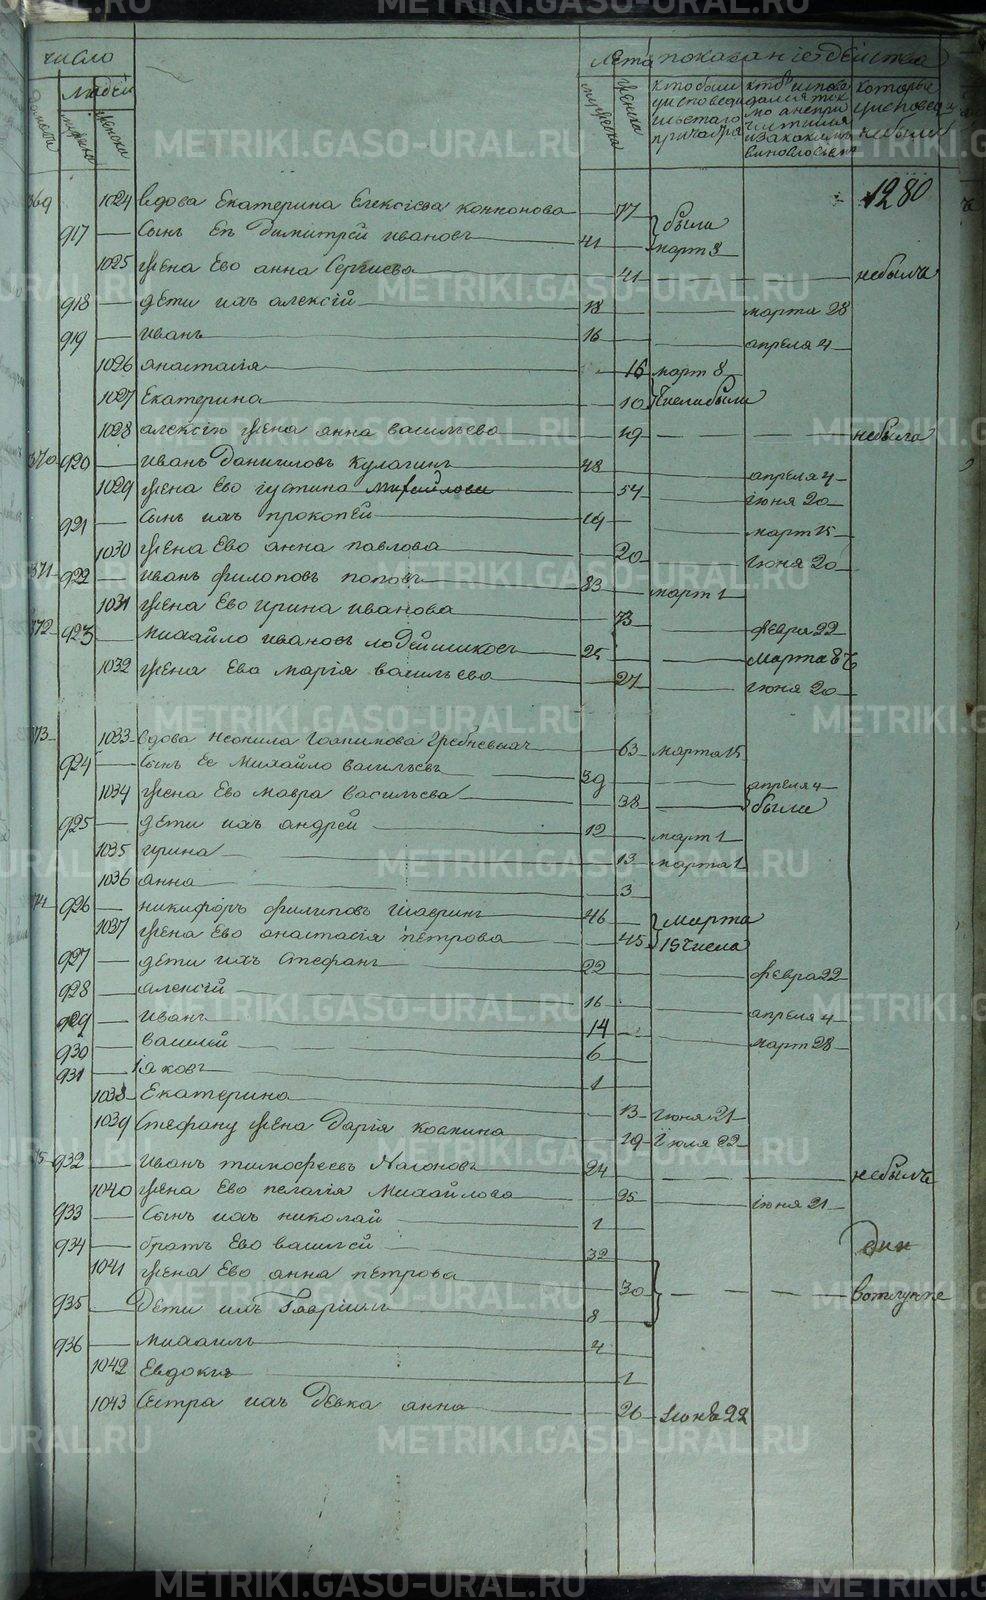 число Лета показаніе действа
людей
домовъ мужска женска мужеска женска кто были у исповеди и святаго причастія кто исповедался токмо а не причастился и за какимъ виновословіем которые у исповеди не были
1280
369 1024 вдова Екатерина Елексіева кононова 77 были
917 Сынъ Ее Димитрей Ивановъ 41 март 8
1025 жена Ево анна Сергиева 41 небыла
918 дети ихъ алексій 18 марта 28
919 иванъ 16 апреля 4
1026 анастасія 16 март 8
1027 Екатерина 10 были
1028 алексію жена анна васильева 19 небыла
370 920 Иванъ Даниловъ Кулагинъ 48 апреля 4
1029 жена Ево іустина михайлова 54 іюня 20
921 Сынъ ихъ прокопей 19 март 15
1030 жена Ево анна павлова 20 іюня 20
371 922 иванъ филиповъ поповъ 83 март 1
1031 жена Ево ирина иванова 73 февра 22
372 923 михайло ивановъ лодейшиковъ 25 марта 8
1032 жена Ево марія васильева 27 іюня 20
373 1033 вдова неонила Іоакимова Гребневыхъ 63 марта 15
924 Сынъ Ее Михайло васильевъ 39 апреля 4
1034 жена Ево мавра васильева 38 были
925 дети ихъ андрей 12 март 1
1035 ирина 13 марта 1
1036 анна 3
374 926 никифоръ филиповъ шавринъ 46 марта
1037 жена Ево анастасія петрова 45 15 числа
927 дети ихъ Стефанъ 22 февра 22
928 алексій 16 апреля 4
929 Иванъ 14 март 28
930 василей 6
931 іаковъ 1
1038 Екатерина 13 іюня 21
1039 Стефану жена Дарія козмина 19 іюля 22
375 932 Иванъ тимофеевъ 24 небылъ
1040 жена Ево пелагія Михайлова 25 іюня 21
933 Сынъ ихъ николай 1
934 братъ Ево василей 32
1041 жена Ево анна петрова 30 вотлучке
935 Дети ихъ Гавріилъ 8
936 михаилъ 4
1042 Евдокія 1
1043 Сестра ихъ Девка анна 26 іюня 22
METRIKI.GASO-URAL.RU